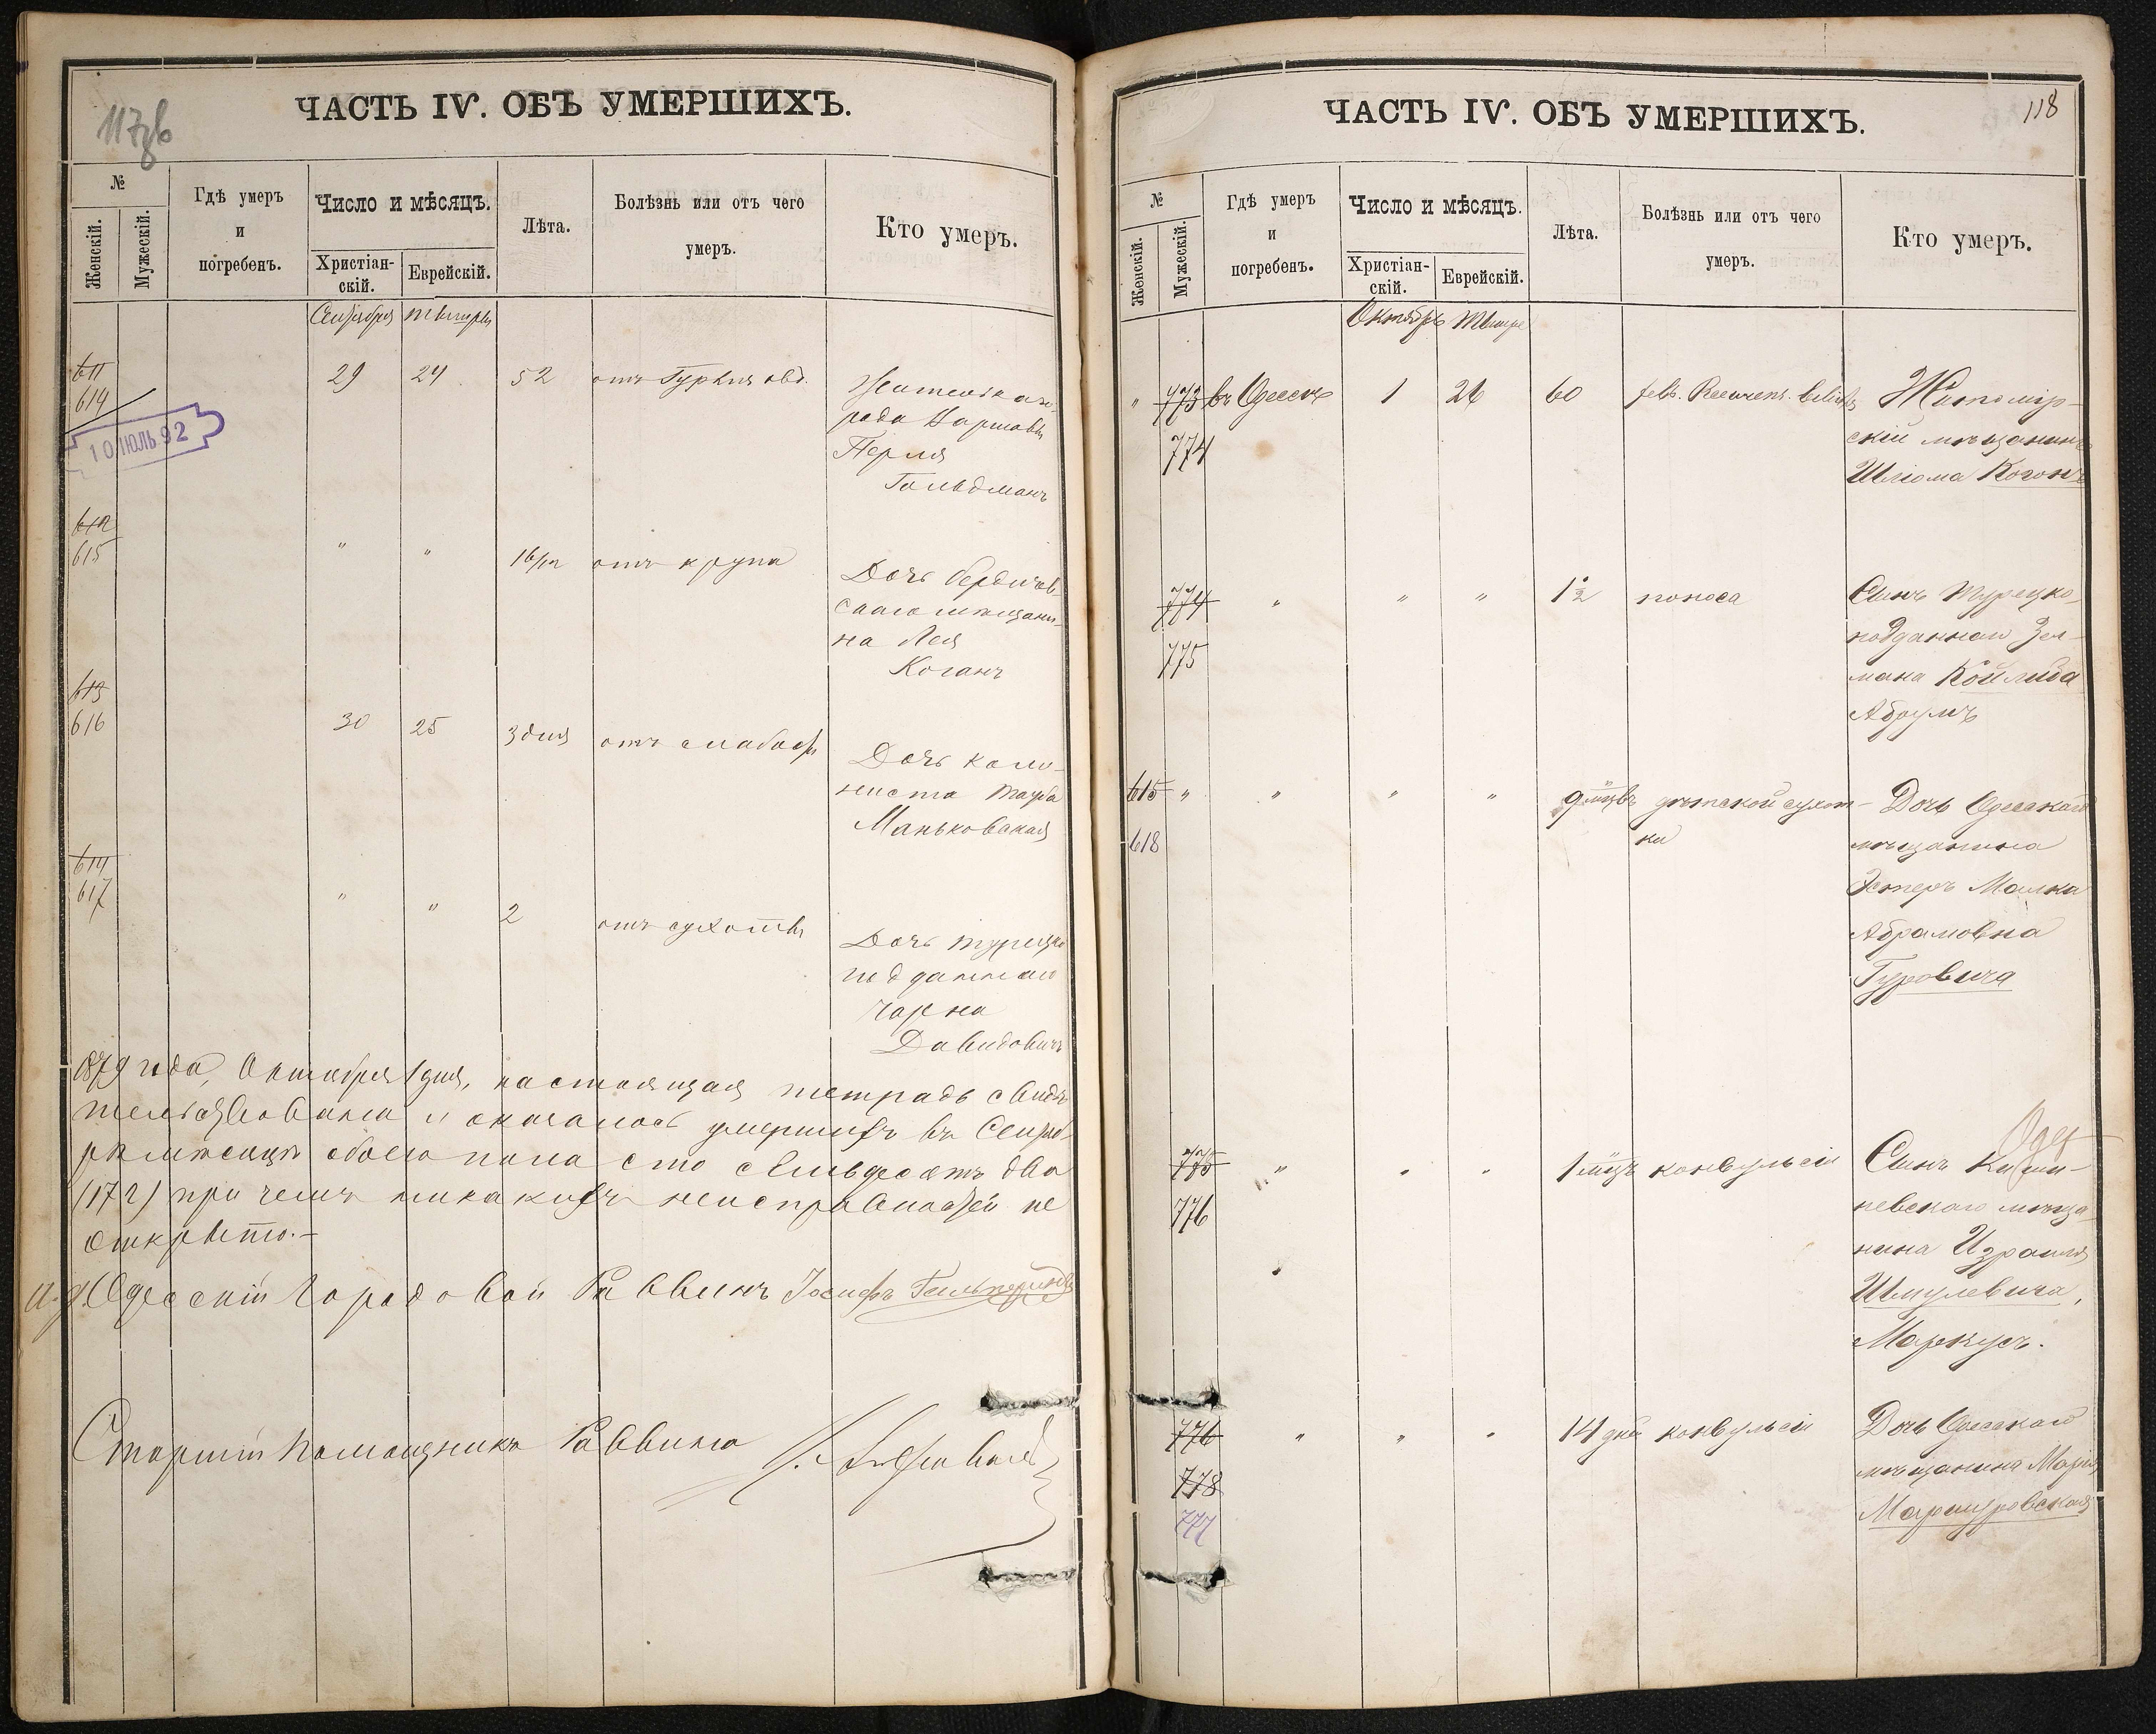 117 об
ЧАСТЬ IV. ОБЪ УМЕРШИХЪ.
№
Женскій.
Мужескій.
Гдѣ умеръ
и
погребенъ.
Число и мѣсяцъ.
Христіан-
скій.
Еврейскій.
Лѣта.
Болѣзнь или отъ чего
умеръ.
Кто умеръ.
Сентября Тишри
611 29 24 52 отъ
614
рода Варшавы
Перля
Гольдманъ
10 ІЮЛЬ 92
612
615 " " 1 6/12 отъ крупа
Дочь бердичев-
скаго мѣщани-
на Лея
Коганъ
613
616 30 25 3 дня отъ слабости
Дочь коло-
ниста Тауба
Маньковская
614
617 " " 2 отъ сухотъ
Дочь турецко
подданнаго
Чарна
Давидовичъ
1879 года, Октября 1 дня, настоящая тетрадь свидѣ-
тельствована и оказалось умершихъ въ Сентяб-
рѣ мѣсяцѣ обоего пола сто семьдесятъ два
(172) при чемъ никакихъ неисправностей не
открыто.-
И. д. Одесскій Городовой Раввинъ Іосифъ Гальперинъ
Старшій Помощникъ Раввина
118
ЧАСТЬ IV. ОБЪ УМЕРШИХЪ.
№
Женскій.
Мужескій.
Гдѣ умеръ
и
погребенъ.
Число и мѣсяцъ.
Христіан-
скій.
Еврейскій.
Лѣта.
Болѣзнь или отъ чего
умеръ.
Кто умеръ.
Октябрь Тишре
" 773 въ Одессѣ 1 26 60 febr. Recurens. Житомір-
774 скій мѣщанинъ
Шлiома Когонъ
774 " " " 1 1/2 поноса Сынъ Турецко-
775 подданнаго Зел-
мана Койлиба
Абрумъ
615 " " " " 9 мцвъ дѣтской сухот- Дочь Одесскаго
618 ки мѣщанина
Эстеръ Малка
Абрамовна
Гуровича
Одес
775 " " " 1 мцъ конвульсіи Сынъ Киши-
776 невскаго мѣща-
нина Израиля
Шмулевича,
Маркусъ.
776 " " " 14 дней конвульсіи Дочь Одесскаго
778 мѣщанина Марія
777